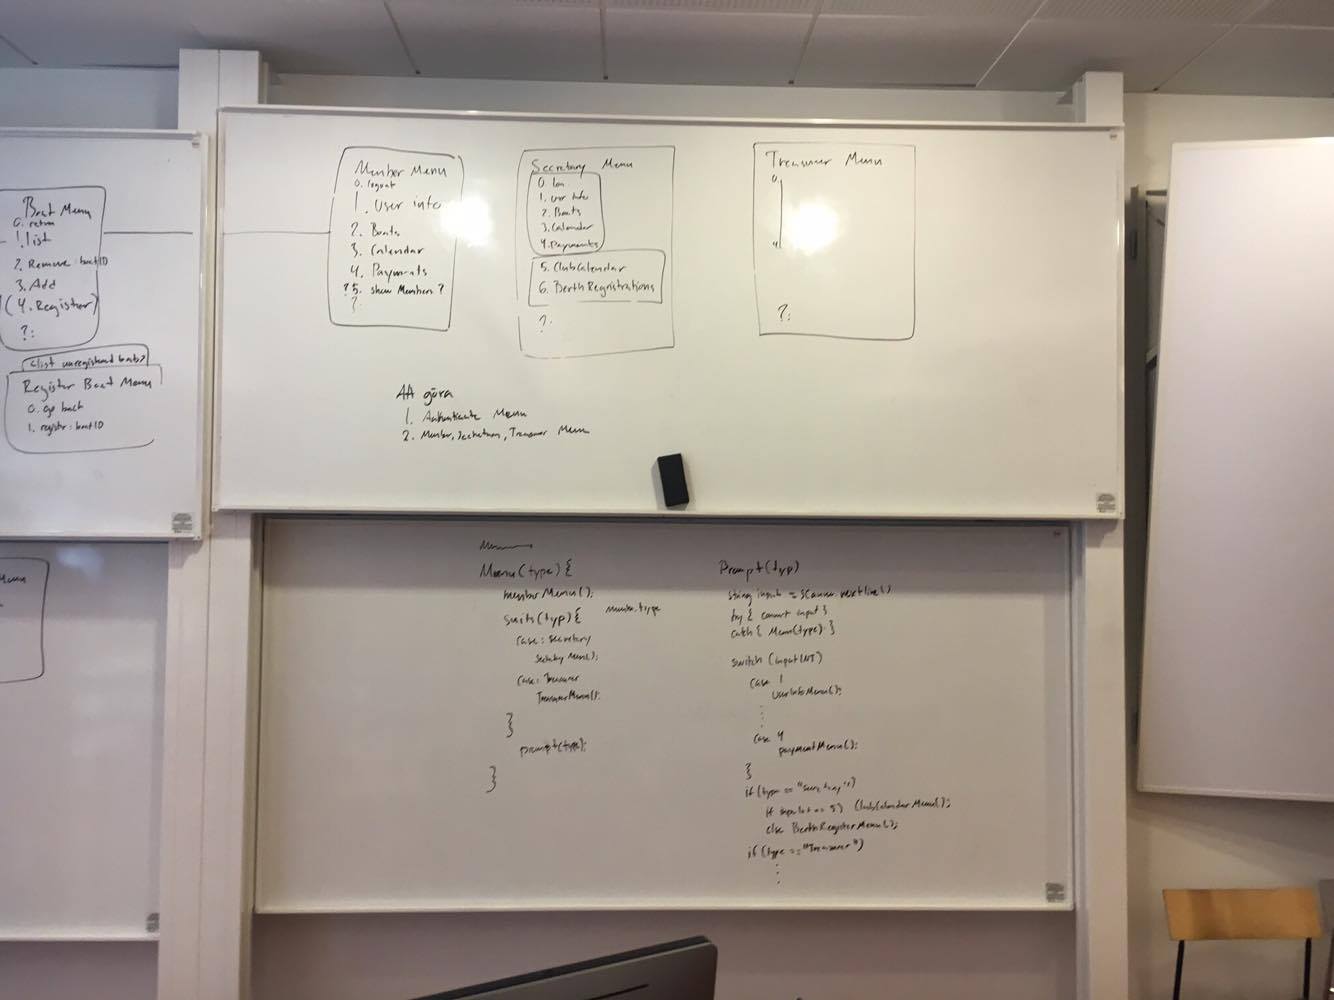 Boat Menu
0. return
1. list
2. Remove: boatID
3. Add
(4. Register)
?:
<list unregistered boats>
Register Boat Menu
0. go back
1. registr: boatID
Member Menu
0. logout
1. User info
2. Boats
3. Calendar
4. Payments
?5. show Members?
?
Secretary Menu
0. Log
1. User Info
2. Boats
3. Calendar
4. Payments
5. ClubCalendar
6. BerthRegistrations
?.
Treasurer Menu
0.
4.
?:
Att göra
1. Authenticate Menu
2. Member, Secretary, Treasurer Menu
Menu
Menu(type){
memberMenu();
suits(typ){ member.type
case: secretary
SecretaryMenu();
case: Treasurer
TreasurerMenu();
}
prompt(type);
}
Prompt(typ)
string input = Scanner.nextline()
try { convert input }
catch { Menu(type) }
switch (inputINT)
case 1
UserInfoMenu();
case 4
paymentMenu();
}
if(type == "Secretary")
if input == 5) ClubCalendarMenu();
else BerthRegisterMenu();
if(type == "Treasurer")